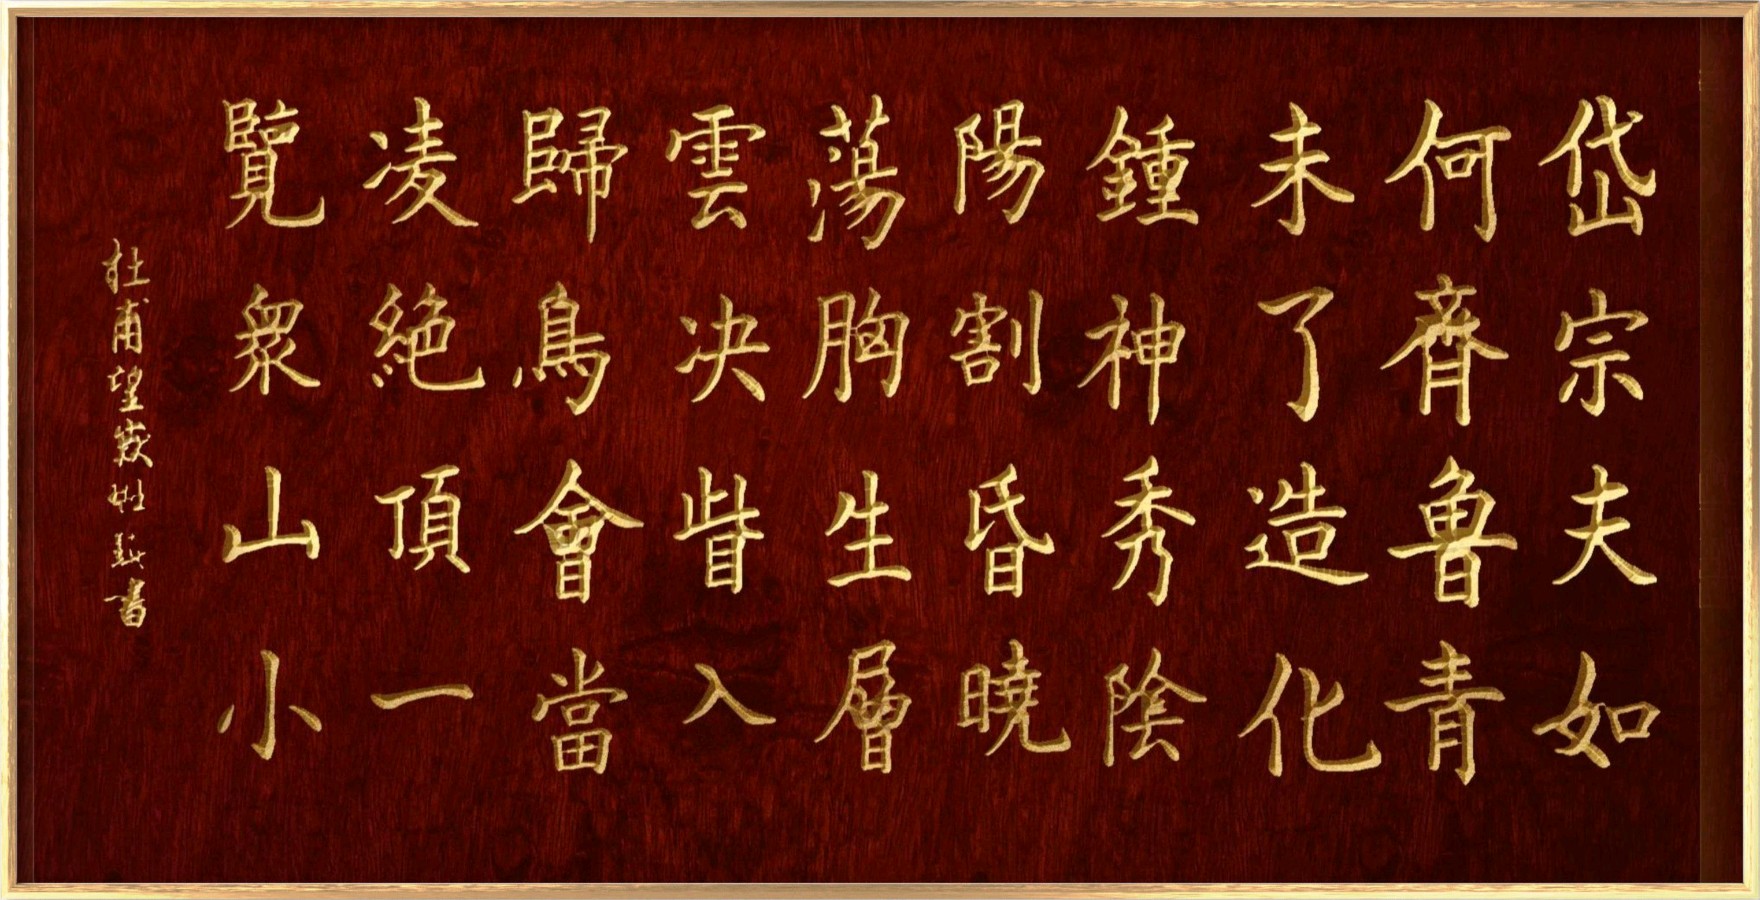 岱宗夫如
何齊魯青
未了造化
鍾神秀陰
陽割昏曉
蕩胸生層
雲决眥入
歸鳥會當
凌絕頂一
覽衆山小
杜甫望嶽書